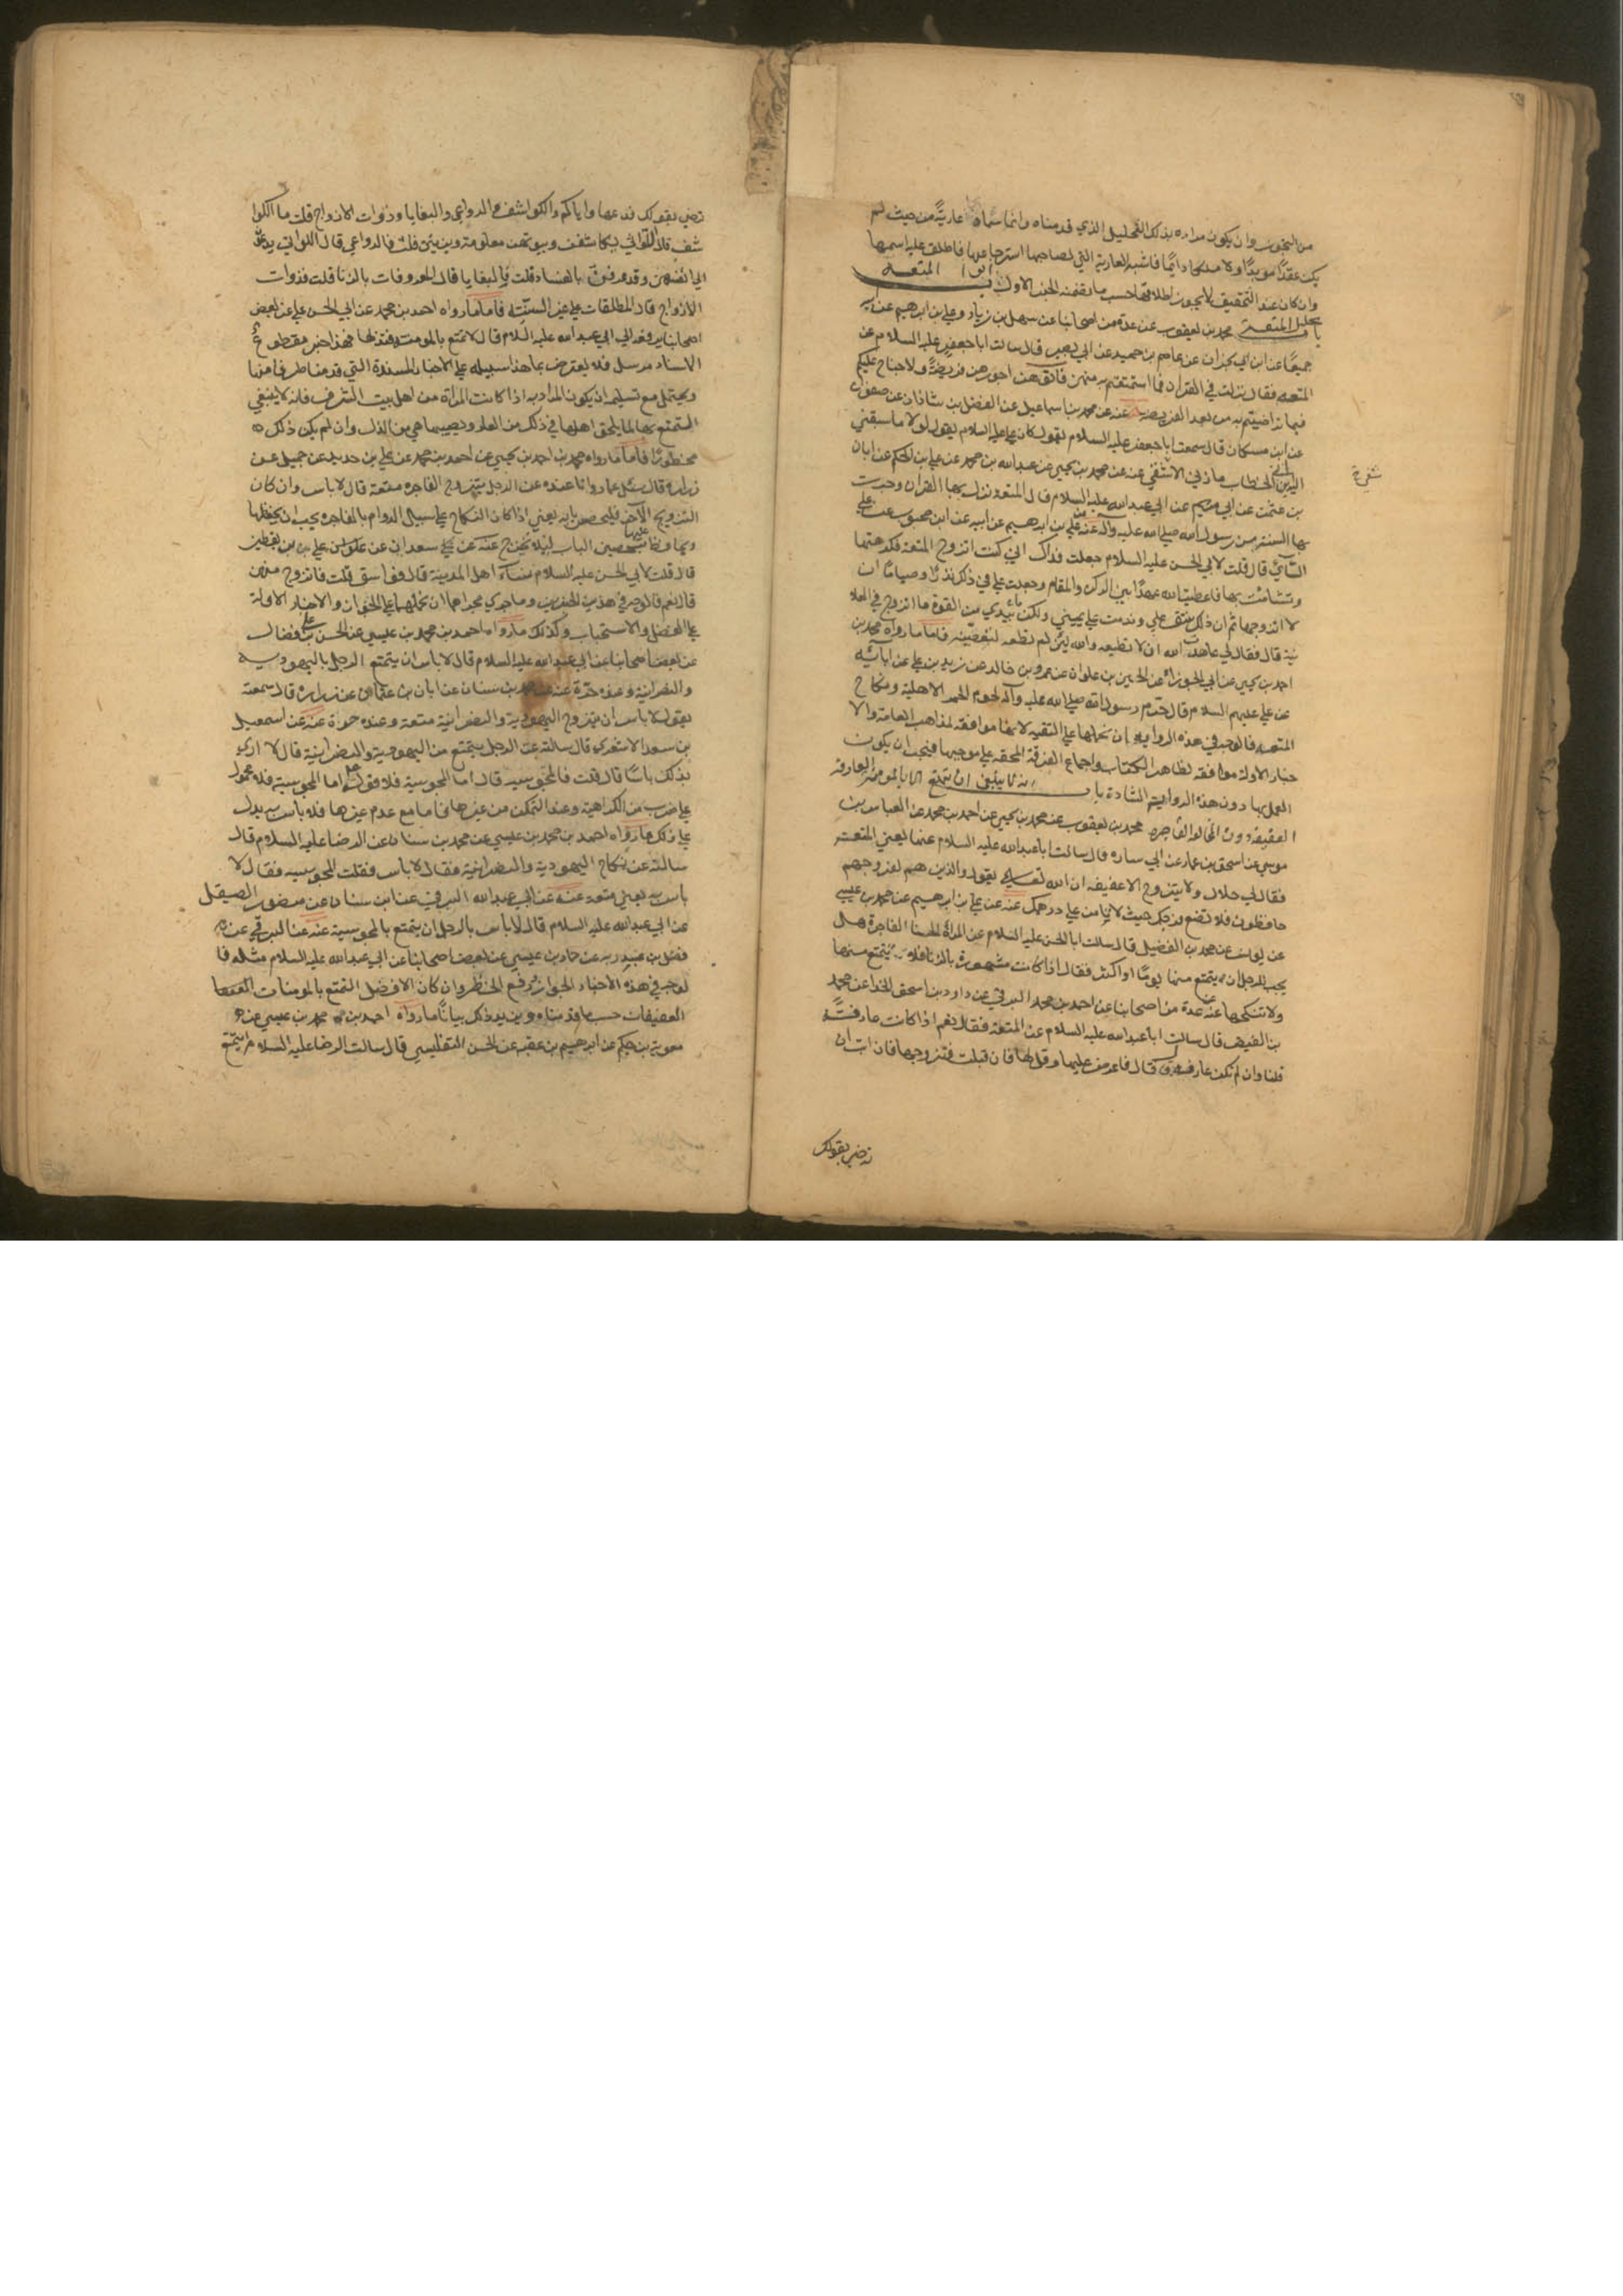 من التجوز وان يكون مراده بذلك التحليل الذي قدمناه وانما سماه عارية من حيث لم
يكن عقدًا مؤبدًا ولا ملكا دايمًا فاشبه العارية التي لصاحبها استرجاعها فاطلق عليه اسمها
وان كان عند التحقيق لا يجوز اطلاقها حسب ما تضمنه الخبر الاول ابواب المتعه
باب تحليل المتعة محمد بن يعقوب عن عدة من اصحابنا عن سهل بن زياد وعلي بن ابراهيم عن ابيه
جميعًا عن ابن ابي نجران عن عاصم بن حميد عن ابي بصير قال سالت ابا جعفر عليه السلام عن
المتعه فقال نزلت في القران فما استمتعتم به منهن فاتوهن اجورهن فريضةً ولا جناح عليكم
فيما تراضيتم به من بعد الفريضه عنه عن محمد بن اسماعيل عن الفضل بن شاذان عن صفوان
عن ابن مسكان قال سمعت ابا جعفر عليه السلام يقول كان علي عليه السلام يقول لولا ما سبقني
اليه ابن الخطاب ما زنى الا شقي عنه عن محمد بن يحيى عن عبدالله بن محمد عن علي بن الحكم عن ابان
شفى خ
بن عثمن عن ابي مريم عن ابي عبدالله عليه السلام قال المتعه نزل بها القران وجرت
بها السنة من رسول الله صلى الله عليه واله عنه عن علي بن ابرهيم عن ابيه عن ابن محبوب عن علي
السائي قال قلت لابي الحسن عليه السلام جعلت فداك اني كنت اتزوج المتعه فكرهتها
وتشامت بها فاعطيت الله عهدًا بين الركن والمقام وجعلت علي في ذلك نذرًا وصيامًا ان
لا اتزوجها ثم ان ذلك شق علي وندمت على يميني ولكن بيدي من القوة ما اتزوج في العلا
نية قال فقال لي عاهدت الله ان لا تطيعه والله لئن لم تطعه لتعصينه فاما ما رواه محمد بن
احمد بن يحيى عن ابي الجوزاء عن الحسين بن علوان عن عمرو بن خالد عن زيد بن علي عن ابائه
عن علي عليهم السلام قال حرم رسول الله صلى الله عليه وآله لحوم الحمر الاهلية ونكاح
المتعه فالوجه في هذه الروايه ان نحملها علي التقيه لانها موافقه لمذاهب العامة والا
خبار الاوله موافقه لظاهر الكتاب واجماع الفرقة المحقه علي موجبها فيجب ان يكون
العمل بها دون هذه الرواية الشاذة باب انه لا ينبغي ان يتمتع الا بالمومنه العارفه
العفيفة دون المخالفه الفاجره محمد بن يعقوب عن محمد بن يحيى عن احمد بن محمد عن العباس بن
موسى عن اسحق بن عمار عن ابي ساره قال سالت ابا عبدالله عليه السلام عنها يعني المتعه
فقال لي حلال ولا يتزوج الا عفيفه ان الله تعالى يقول والذين هم لفروجهم
حافظون فلا تضع فرجك حيث لا تامن علي درهمك عنه عن علي بن ابرهيم عن محمد بن عيسى
عن يونس عن محمد بن الفضيل قال سالت ابا الحسن عليه السلام عن المرأة الحسنا الفاجرة هل
يجب للرجل ان يتمتع منها يومًا او اكثر فقال اذا كانت مشهورة بالزنا فلا يتمتع منها
ولا ينكحها عنه عن عدة من اصحابنا عن احمد بن محمد البرقي عن داود بن اسحق الحذا عن محمد
بن الفيض قال سالت ابا عبدالله عليه السلام عن المتعة فقال نعم اذا كانت عارفة
قلنا وان لم تكن عارفه قال فاعرض عليها وقل لها فان قبلت فتزوجها فان ابت ان
ترضى بقولك
ترضى بقولك فدعها واياكم والكواشف والدواعي والبغايا وذوات الازواج قلت ما الكوا
شف قال اللواتي يكاشفن وبيوتهن معلومة ويزنين قلت فالدواعي قال اللواتي يدعون
الى انفسهن وقد عرفن بالفساد قلت فالبغايا قال المعروفات بالزنا قلت فذوات
الازواج قال المطلقات علي غير السنة فاما ما رواه احمد بن محمد عن ابي الحسن علي عن بعض
اصحابنا يرفعه الى ابي عبدالله عليه السلام قال لا تمتع بالمومنه فتذلها فهذا خبر مقطوع
الاسناد مرسل فلا يعترض بما هذا سبيله علي الاخبار المسندة التي قدمنا طرفا منها
ويحتمل مع تسليمه ان يكون المراد به اذا كانت المرأة من اهل بيت الشرف فانه لا ينبغي
التمتع بها لما يلحق اهلها في ذلك من العار ويصيبها هي من الذل وان لم يكن ذلك
محظورًا فاما ما رواه محمد بن احمد بن يحيى عن احمد بن محمد عن علي بن حديد عن جميل عن
زراره قال سئل عمار وانا عنده عن الرجل يتزوج الفاجره متعة قال لا باس وان كان
التزويج الآخر فليحصن بابه يعني اذا كان النكاح علي سبيل الدوام بالفاجره يجب ان يحفظها
ويمنعها عليها بتحصين الباب لئلا تخرج عنه عن سعدان عن علي بن يقطين
قال قلت لابي الحسن عليه السلام نساء اهل المدينة قال فواسق قلت فاتزوج منهن
قال نعم فالوجه في هذين الخبرين وما جرى مجراهما ان نحملهما علي الجواز والاخبار الاولة
علي الفضل والاستحباب وكذلك ما رواه احمد بن محمد بن عيسى عن الحسن بن علي بن فضال
عن بعض اصحابنا عن ابي عبدالله عليه السلام قال لا باس ان يتمتع الرجل باليهوديه
والنصرانية وعنده حرة عنه عن محمد بن سنان عن ابان بن عثمان عن زراره قال سمعته
يقول لا باس ان يتزوج اليهودية والنصرانية متعة وعنده حرة عنه عن اسمعيل
بن سعد الاشعري قال سالته عن الرجل يتمتع من اليهودية والنصرانية قال لا ارى
بذلك باسًا قال قلت فالمجوسيه قال اما المجوسية فلا فقوله اما المجوسية فلا محمول
علي ضرب من الكراهية وعند التمكن من غيرها فاما مع عدم غيرها فلا باس به يدل
علي ذلك ما رواه احمد بن محمد بن عيسى عن محمد بن سنان عن الرضا عليه السلام قال
سالته عن نكاح اليهودية والنصرانية فقال لا باس فقلت المجوسيه فقال لا
باس به يعني متعة عنه عن ابي عبدالله البرقي عن ابن سنان عن منصور الصيقل
عن ابي عبدالله عليه السلام قال لا باس بالرجل ان يتمتع بالمجوسية عنه عن البرقي عن
فضل بن عبد ربه عن حماد بن عيسى عن بعض اصحابنا عن ابي عبدالله عليه السلام مثله فا
لوجه في هذه الاخبار الجواز ورفع الحظر وان كان الافضل التمتع بالمومنات
العفيفات حسب ما قدمناه ويزيد ذلك بيانًا ما رواه احمد بن محمد بن عيسى عن
معوية بن حكيم عن ابرهيم بن عقبه عن الحسن التفليسي قال سالت الرضا عليه السلام يتمتع